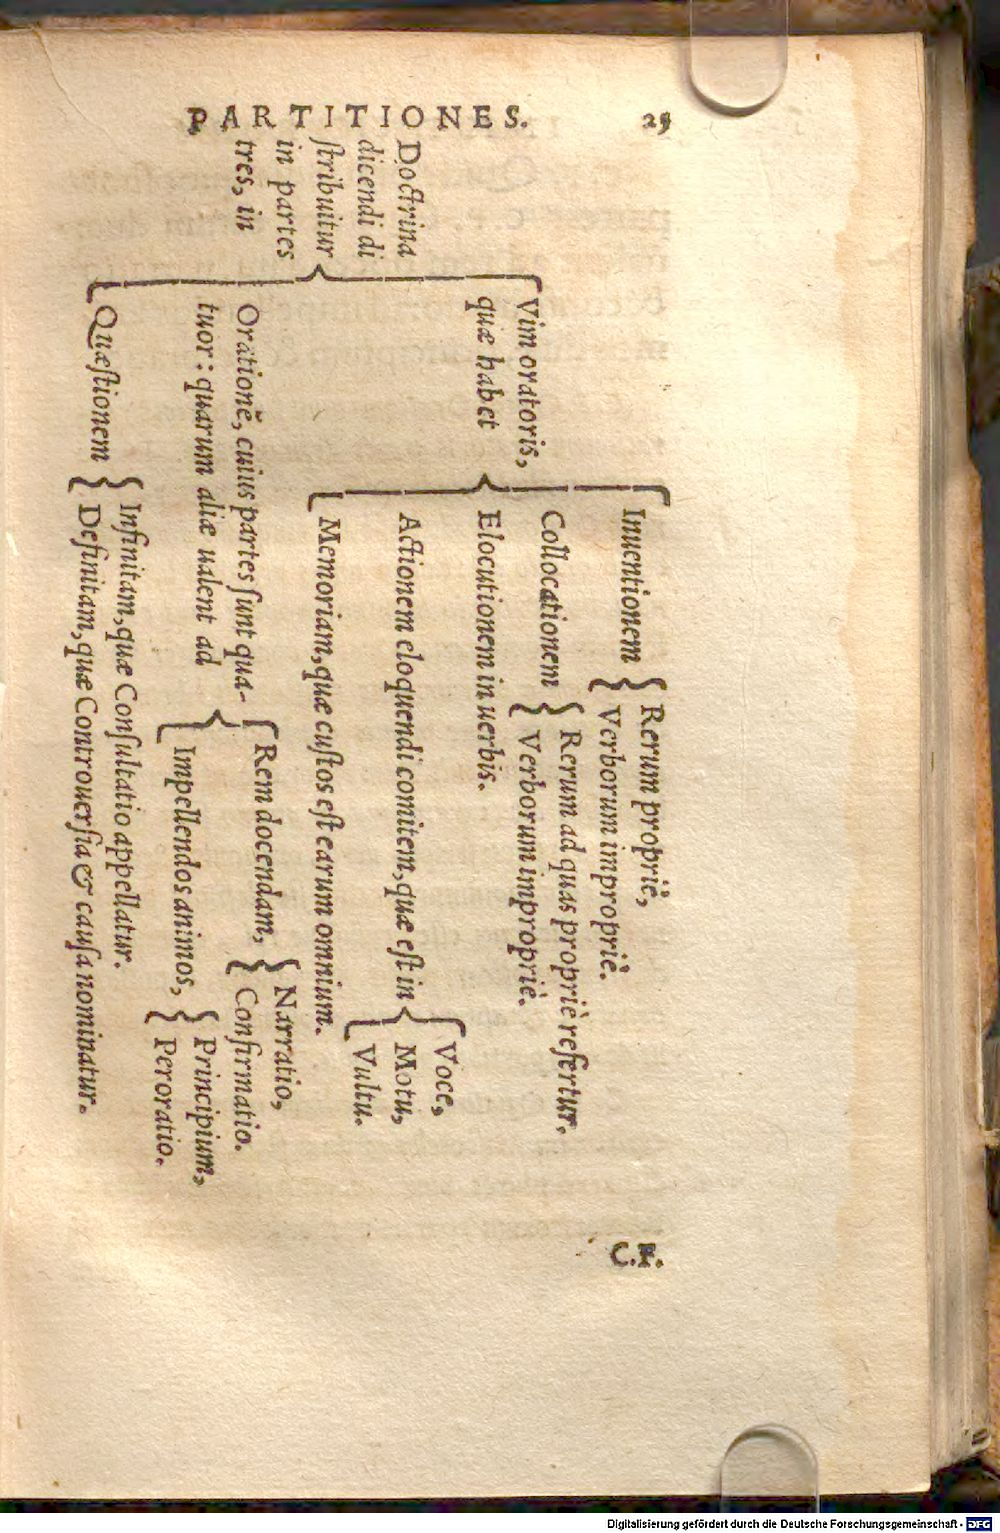 PARTITIONES. 25
Doctrina
dicendi di
ſtribuitur
in partes
tres, in
Vim oratoris,
quæ habet
Inuentionem
Rerum propriè,
Verborum impropriè.
Collocationem
Rerum ad quas propriè refertur.
Verborum impropriè.
Elocutionem in uerbis.
Actionem eloquendi comitem, quæ eſt in
Voce,
Motu,
Vultu.
Memoriam, quæ cuſtos eſt earum omnium.
Orationē, cuius partes ſunt qua-
tuor: quarum aliæ ualent ad
Rem docendam,
Narratio,
Confirmatio.
Impellendos animos,
Principium,
Peroratio.
Quæſtionem
Infinitam, quæ Conſultatio appellatur.
Definitam, quæ Controuerſia & cauſa nominatur.
C.F.
Digitalisierung gefördert durch die Deutsche Forschungsgemeinschaft - DFG